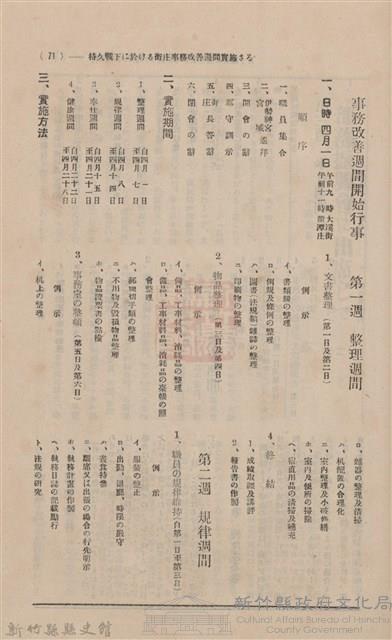 (71) ── 持久戰下に於ける街庄事務改善週間實施さる
事務改善週間開始行事
一、日時 四月一日 午前九時大溪街
午前十一時龍潭庄
順序
一、職員集合
二、伊勢神宮遙拜
宮城
三、開會の辭
四、郡守訓示
五、街庄長答辭
六、閉會の辭
二、實施期間
1、整理週間 自四月一日
至四月七日
2、規律週間 自四月八日
至四月十四日
3、奉仕週間 自四月十五日
至四月二十一日
4、健康週間 自四月二十二日
至四月二十八日
三、實施方法
第一週 整理週間
1、文書整理 (第一日及第二日)
例示
イ、書類綴の整理
ロ、例規及條例の整理
ハ、圖書、法規類、雜誌の整理
ニ、印刷物の整理
2、物品整理 (第三日及第四日)
例示
イ、備品、工事材料品、消耗品の整理
ロ、備品、工事材料品、消耗品の臺帳の照
會整理
ハ、郵便切手類の整理
ニ、不用物及毀損物品整理
ホ、物品證票書の點檢
3、事務室の整頓 (第五日及第六日)
例示
イ、机上の整理
ロ、鐵器の整理及清掃
ハ、机配置の合理化
ニ、室內整理及小破修繕
ホ、室內及便所の掃除
ヘ、宿直用品の清掃及補充
4、終結
1、成績取調及講評
2、報告書の作製
第二週 規律週間
1、職員の規律維持 (自第一日至第三日)
例示
イ、服裝の整正
ロ、出勤、退廳、時間の嚴守
ハ、名賞持參
ニ、離席又は出張の場合の行先明示
ホ、執務計畫の作製
ヘ、執務日誌の記載勵行
ト、法規の研究
新竹縣縣史館
新竹縣政府文化局
Cultural Affairs Bureau of Hsinchu
County Government